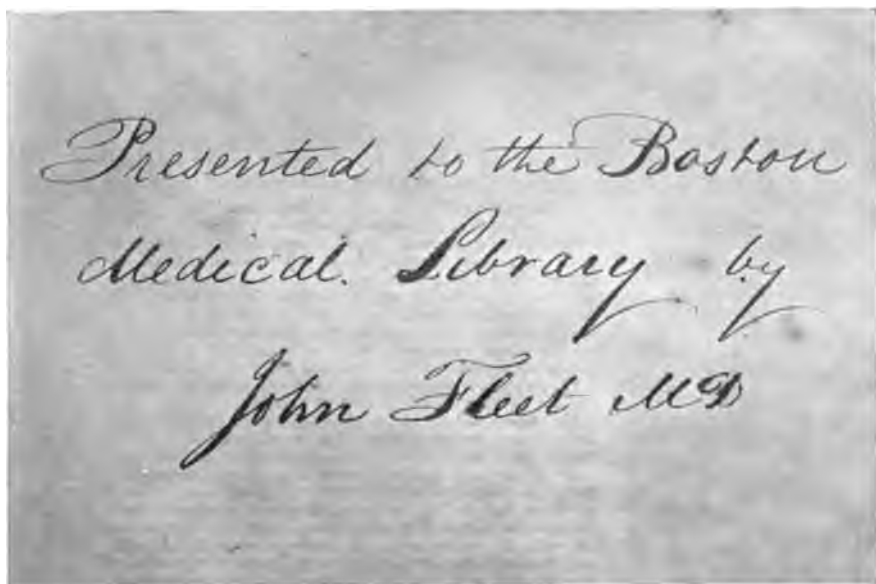 Presented to the Boston
Medical. Library by
John Fleet MD